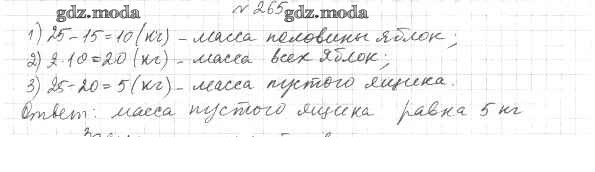 gdz.moda № 265 gdz.moda
1) 25-15=10 (кг) - масса половины яблок;
2) 2·10=20 (кг) - масса всех яблок;
3) 25-20=5 (кг) - масса пустого ящика.
Ответ: масса пустого ящика равна 5 кг